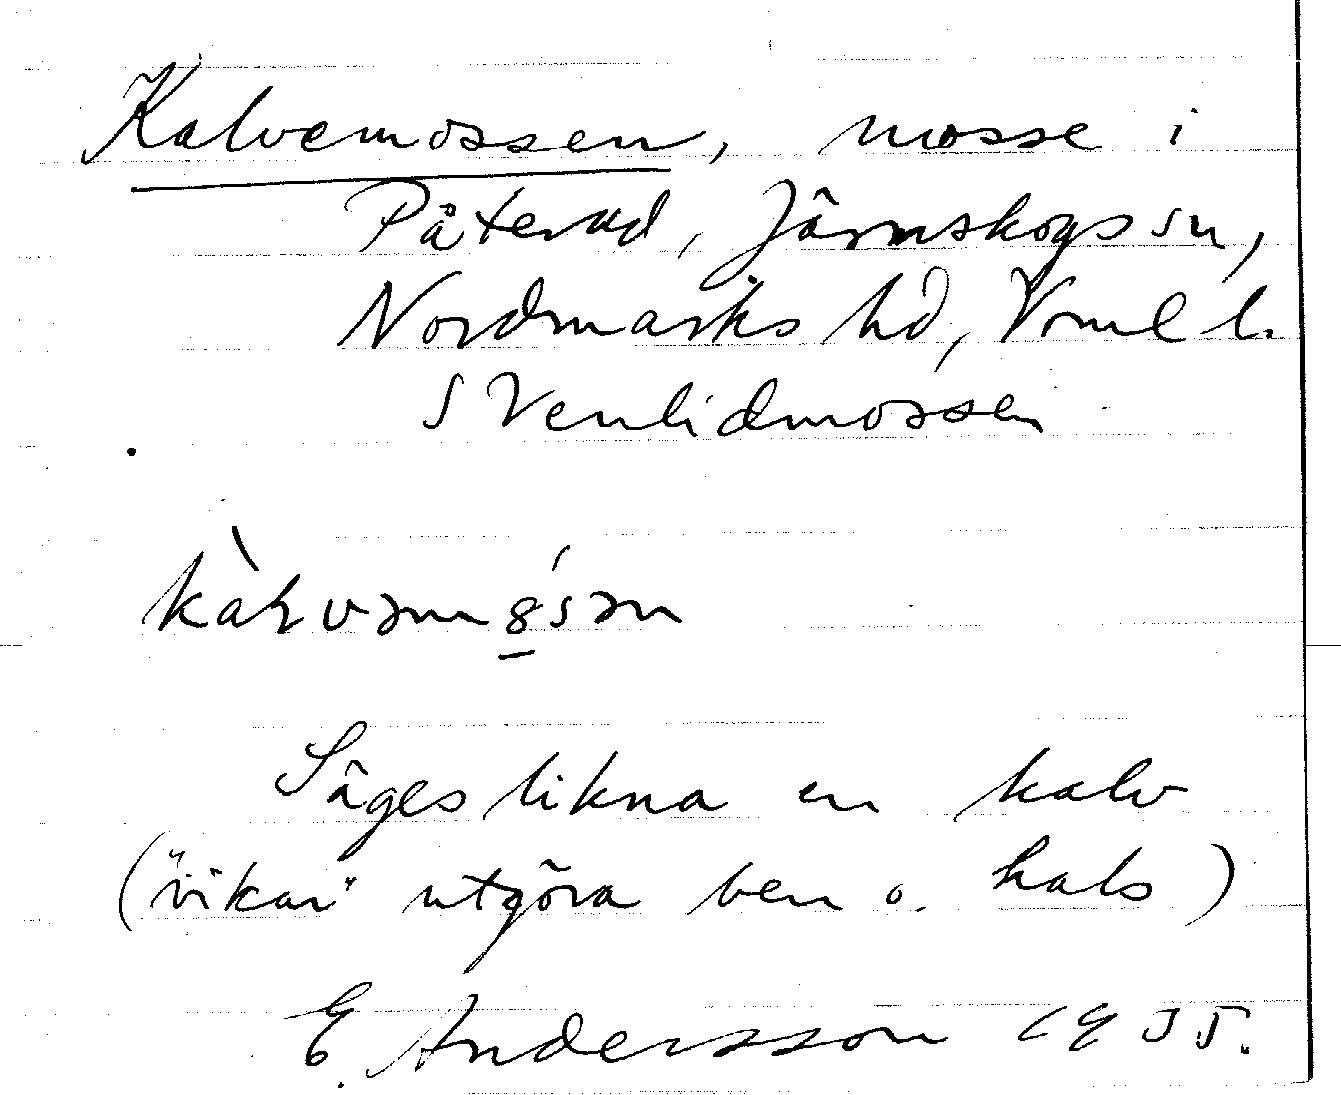 Kalvemossen, mosse i
Påterud, Järnskogs sn,
Nordmarks hd, Vrml l.
S Venlidmossen
Säges likna en kalv
("vikar" utgöra ben o. hals)
E. Andersson 1955.